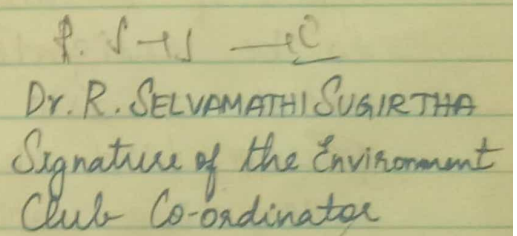 Dr. R. SELVAMATHI SUGIRTHA
Signature of the Environment
Club Co-ordinator